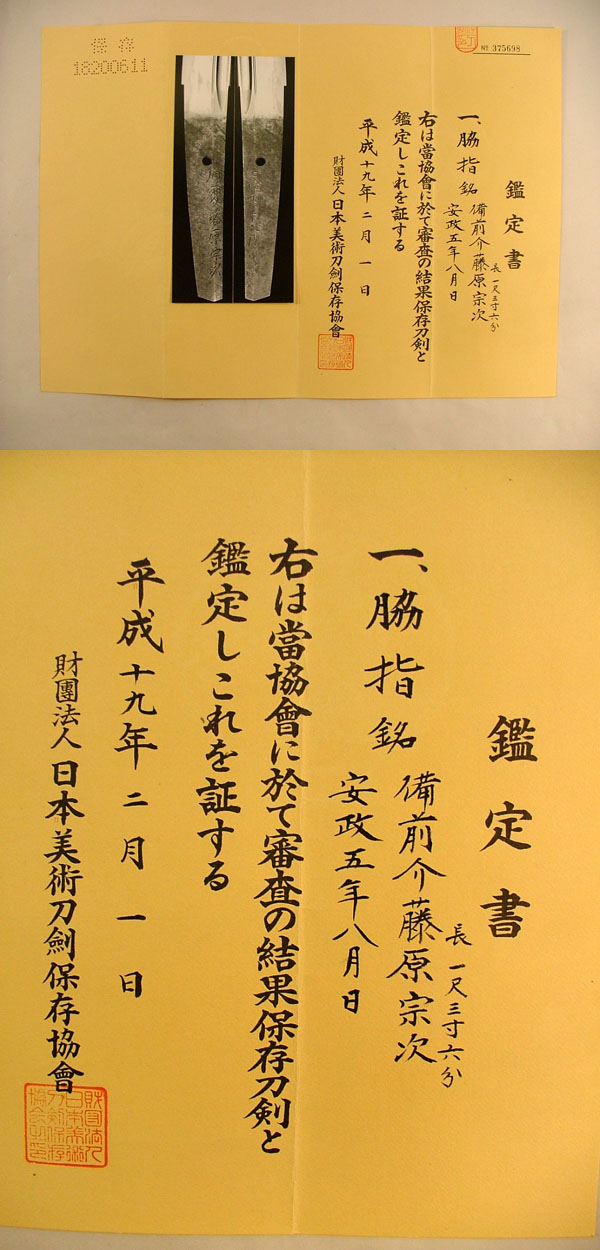 保存
18200611
№ 375698
鑑定書
一、脇指 銘 備前介藤原宗次
長一尺三寸六分
安政五年八月日
右は當協會に於て審査の結果保存刀剣と
鑑定しこれを証する
平成十九年二月一日
財團法人日本美術刀劍保存協會
鑑定書
一、脇指 銘 備前介藤原宗次
長一尺三寸六分
安政五年八月日
右は當協會に於て審査の結果保存刀剣と
鑑定しこれを証する
平成十九年二月一日
財團法人日本美術刀劍保存協會